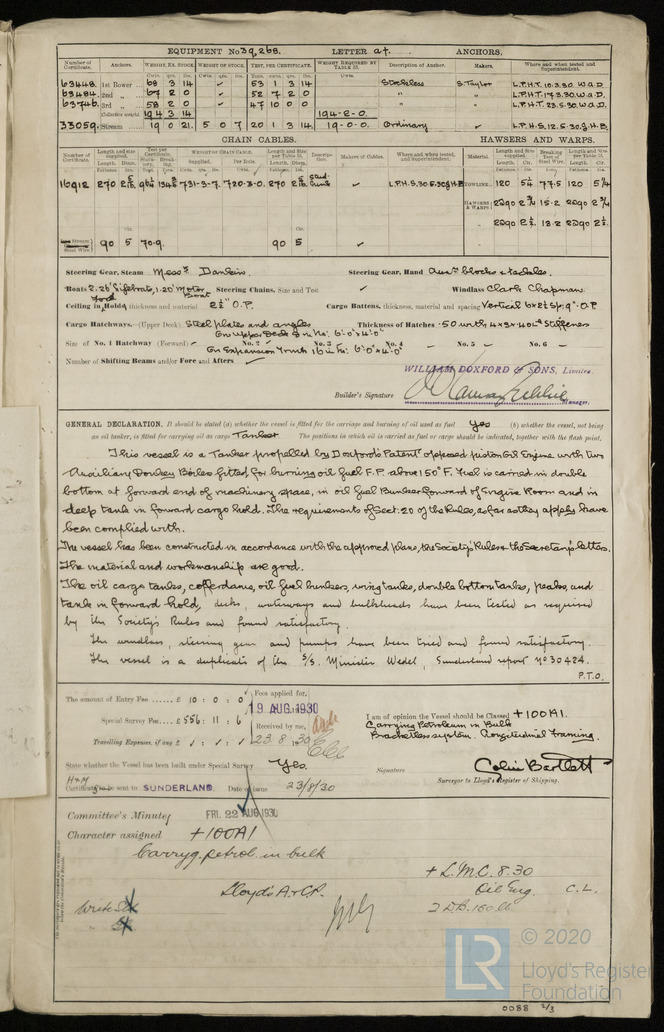 EQUIPMENT No 39,268. LETTER at. ANCHORS.
Number of Certificate. Anchors. WEIGHT, EX. STOCK. WEIGHT OF STOCK. TEST, PER CERTIFICATE. WEIGHT REQUIRED BY TABLE 31. Description of Anchor. Makers. Where and when tested and Superintendent.
63448. 1st Bower 68 3 14 53 1 3 14 Stockless S. Taylor L.P.H.T. 10.3.30. W.a.D.
63484. 2nd " 67 2 0 52 7 2 0 " " L.P.H.T. 17.3.30. W.a.D.
63746. 3rd " 58 2 0 47 10 0 0 " " L.P.H.T. 23.5.30. W.a.D.
Collective weight 194 3 14 194-2-0.
33059. Stream 19 0 21. 5 0 7 20 1 3 14. 19-0-0. Ordinary L.P.H.S. 12.5.30. J.H.B.
CHAIN CABLES. HAWSERS AND WARPS.
Number of Certificate. Length and size supplied. Test per Certificate. WEIGHT OF CHAIN CABLE. Length and size per Table 31. Description. Makers of Cables. Where and when tested, and Superintendent. Material. Length and size supplied. Breaking Test of Steel Wire. Length and size per Table 31.
Supplied. Per Rule.
16912 270 731-3-7. 720-3-0. 270 TOWLINE 120 5¼ 77.5 120 5¼
HAWSERS & WARPS 2@90 2¾ 15.2 2@90 2¾
" 2@90 2½ 18.2 2@90 2½
90 5 70.9. 90 5
Steering Gear, Steam Messrs Dankin. Steering Gear, Hand Auxy blocks & tackles.
Boats 2.26' Lifeboats, 1.20' Motor Boat Steering Chains, Size and Test Windlass Clark Chapman
Ceiling in Holds, thickness and material 2½" O.P. Cargo Battens, thickness, material and spacing Vertical 6x2½ sp. 9" O.P
Cargo Hatchways.—(Upper Deck) Steel plates and angles Thickness of Hatches .50 with 4x3x.40 Stiffeners
On Upper Deck
Size of No. 1 Hatchway (Forward) No. 2 No. 3 No. 4 No. 5 — No. 6 —
On Expansion Trunk 16 in No: 6'-0"x4'-0"
Number of Shifting Beams and/or Fore and Afters
WILLIAM DOXFORD & SONS, Limited.
Builder's Signature Manager.
GENERAL DECLARATION. It should be stated (a) whether the vessel is fitted for the carriage and burning of oil used as fuel Yes (b) whether the vessel, not being
an oil tanker, is fitted for carrying oil as cargo Tanker The positions in which oil is carried as fuel or cargo should be indicated, together with the flash point.
This vessel is a Tanker propelled by Doxford's Patent opposed piston Oil Engine with two
Auxiliary Donkey Boilers fitted for burning oil fuel F.P. above 150° F. Fuel is carried in double
bottom at forward end of machinery space, in oil fuel Bunker forward of Engine Room and in
deep tank in forward cargo hold. The requirements of Sect. 20 of the Rules, as far as they apply have
been complied with.
The vessel has been constructed in accordance with the approved plans, the Society's Rules & the Secretary's letters.
The material and workmanship are good.
The oil cargo tanks, cofferdams, oil fuel bunkers, wing tanks, double bottom tanks, peaks, and
tank in forward hold, decks, waterways and bulkheads have been tested as required
by the Society's Rules and found satisfactory.
The windlass, steering gear and pumps have been tried and found satisfactory.
The vessel is a duplicate of the S/S. Minister Wedel, Sunderland report No 30424.
P.T.O.
The amount of Entry Fee £ 10 : 0 : 0
Fees applied for,
19 AUG. 1930
Special Survey Fee £ 556 : 11 : 6
Received by me,
Travelling Expenses, if any £ 1 : 1 : 1
23.8.30
I am of opinion the Vessel should be Classed +100A1.
Carrying Petroleum in Bulk
Bracketless system. Longitudinal Framing.
State whether the Vessel has been built under Special Survey Yes.
Signature Colin Bartlett
Surveyor to Lloyd's Register of Shipping.
Certificate to be sent to SUNDERLAND. Date of issue 23/8/30
Committee's Minute FRI. 22 AUG 1930
Character assigned +100A1
Carryg. petrol. in bulk
+ L.M.C. 8.30
Lloyd's A & CP. Oil Eng. C.L.
2 D.B. 150 lb
LR
© 2020
Lloyd's Register
Foundation
0088 2/3